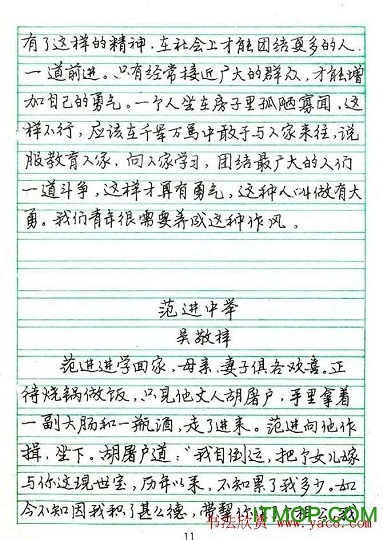 有了这样的精神，在社会上才能团结更多的人
一道前进。只有经常接近广大的群众，才能增
加自己的勇气。一个人坐在房子里孤陋寡闻，这
样不行，应该在千军万马中敢于与人家来往，说
服教育人家，向人家学习，团结最广大的人们
一道斗争，这样才算有勇气，这种人叫做有大
勇。我们青年很需要养成这种作风。
范进中举
吴敬梓
范进进学回家，母亲、妻子俱各欢喜。正
待烧锅做饭，只见他丈人胡屠户，手里拿着
一副大肠和一瓶酒，走了进来。范进向他作
揖，坐下。胡屠户道："我自倒运，把个女儿嫁
与你这现世宝，历年以来，不知累了我多少。如
今不知因我积了甚么德，带挈你
ITMOP.COM
书法欣赏 www.yac8.com
11